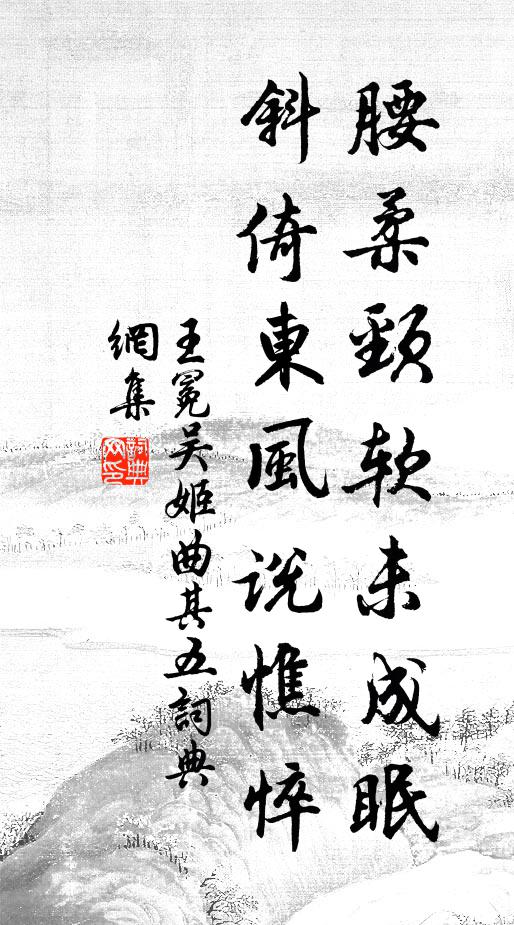 腰柔頸軟未成眠
斜倚東風説憔悴
王冕吴姬曲其五詞典
網集
詞典
网印